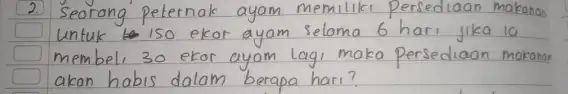 2 Seorang peternak ayam memiliki persediaan makanan
untuk 150 ekor ayam selama 6 hari jika ia
membeli 30 ekor ayam lagi maka persediaan makanan
akan habis dalam berapa hari?